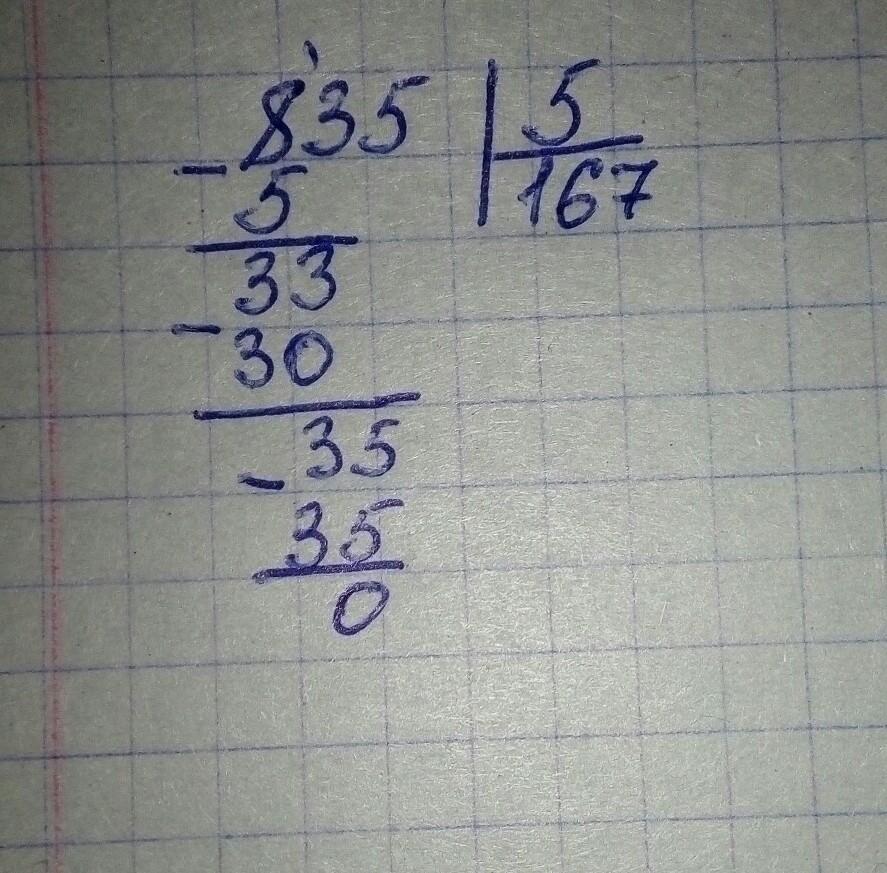 -835 | 5
5 167
33
-30
-35
35
0